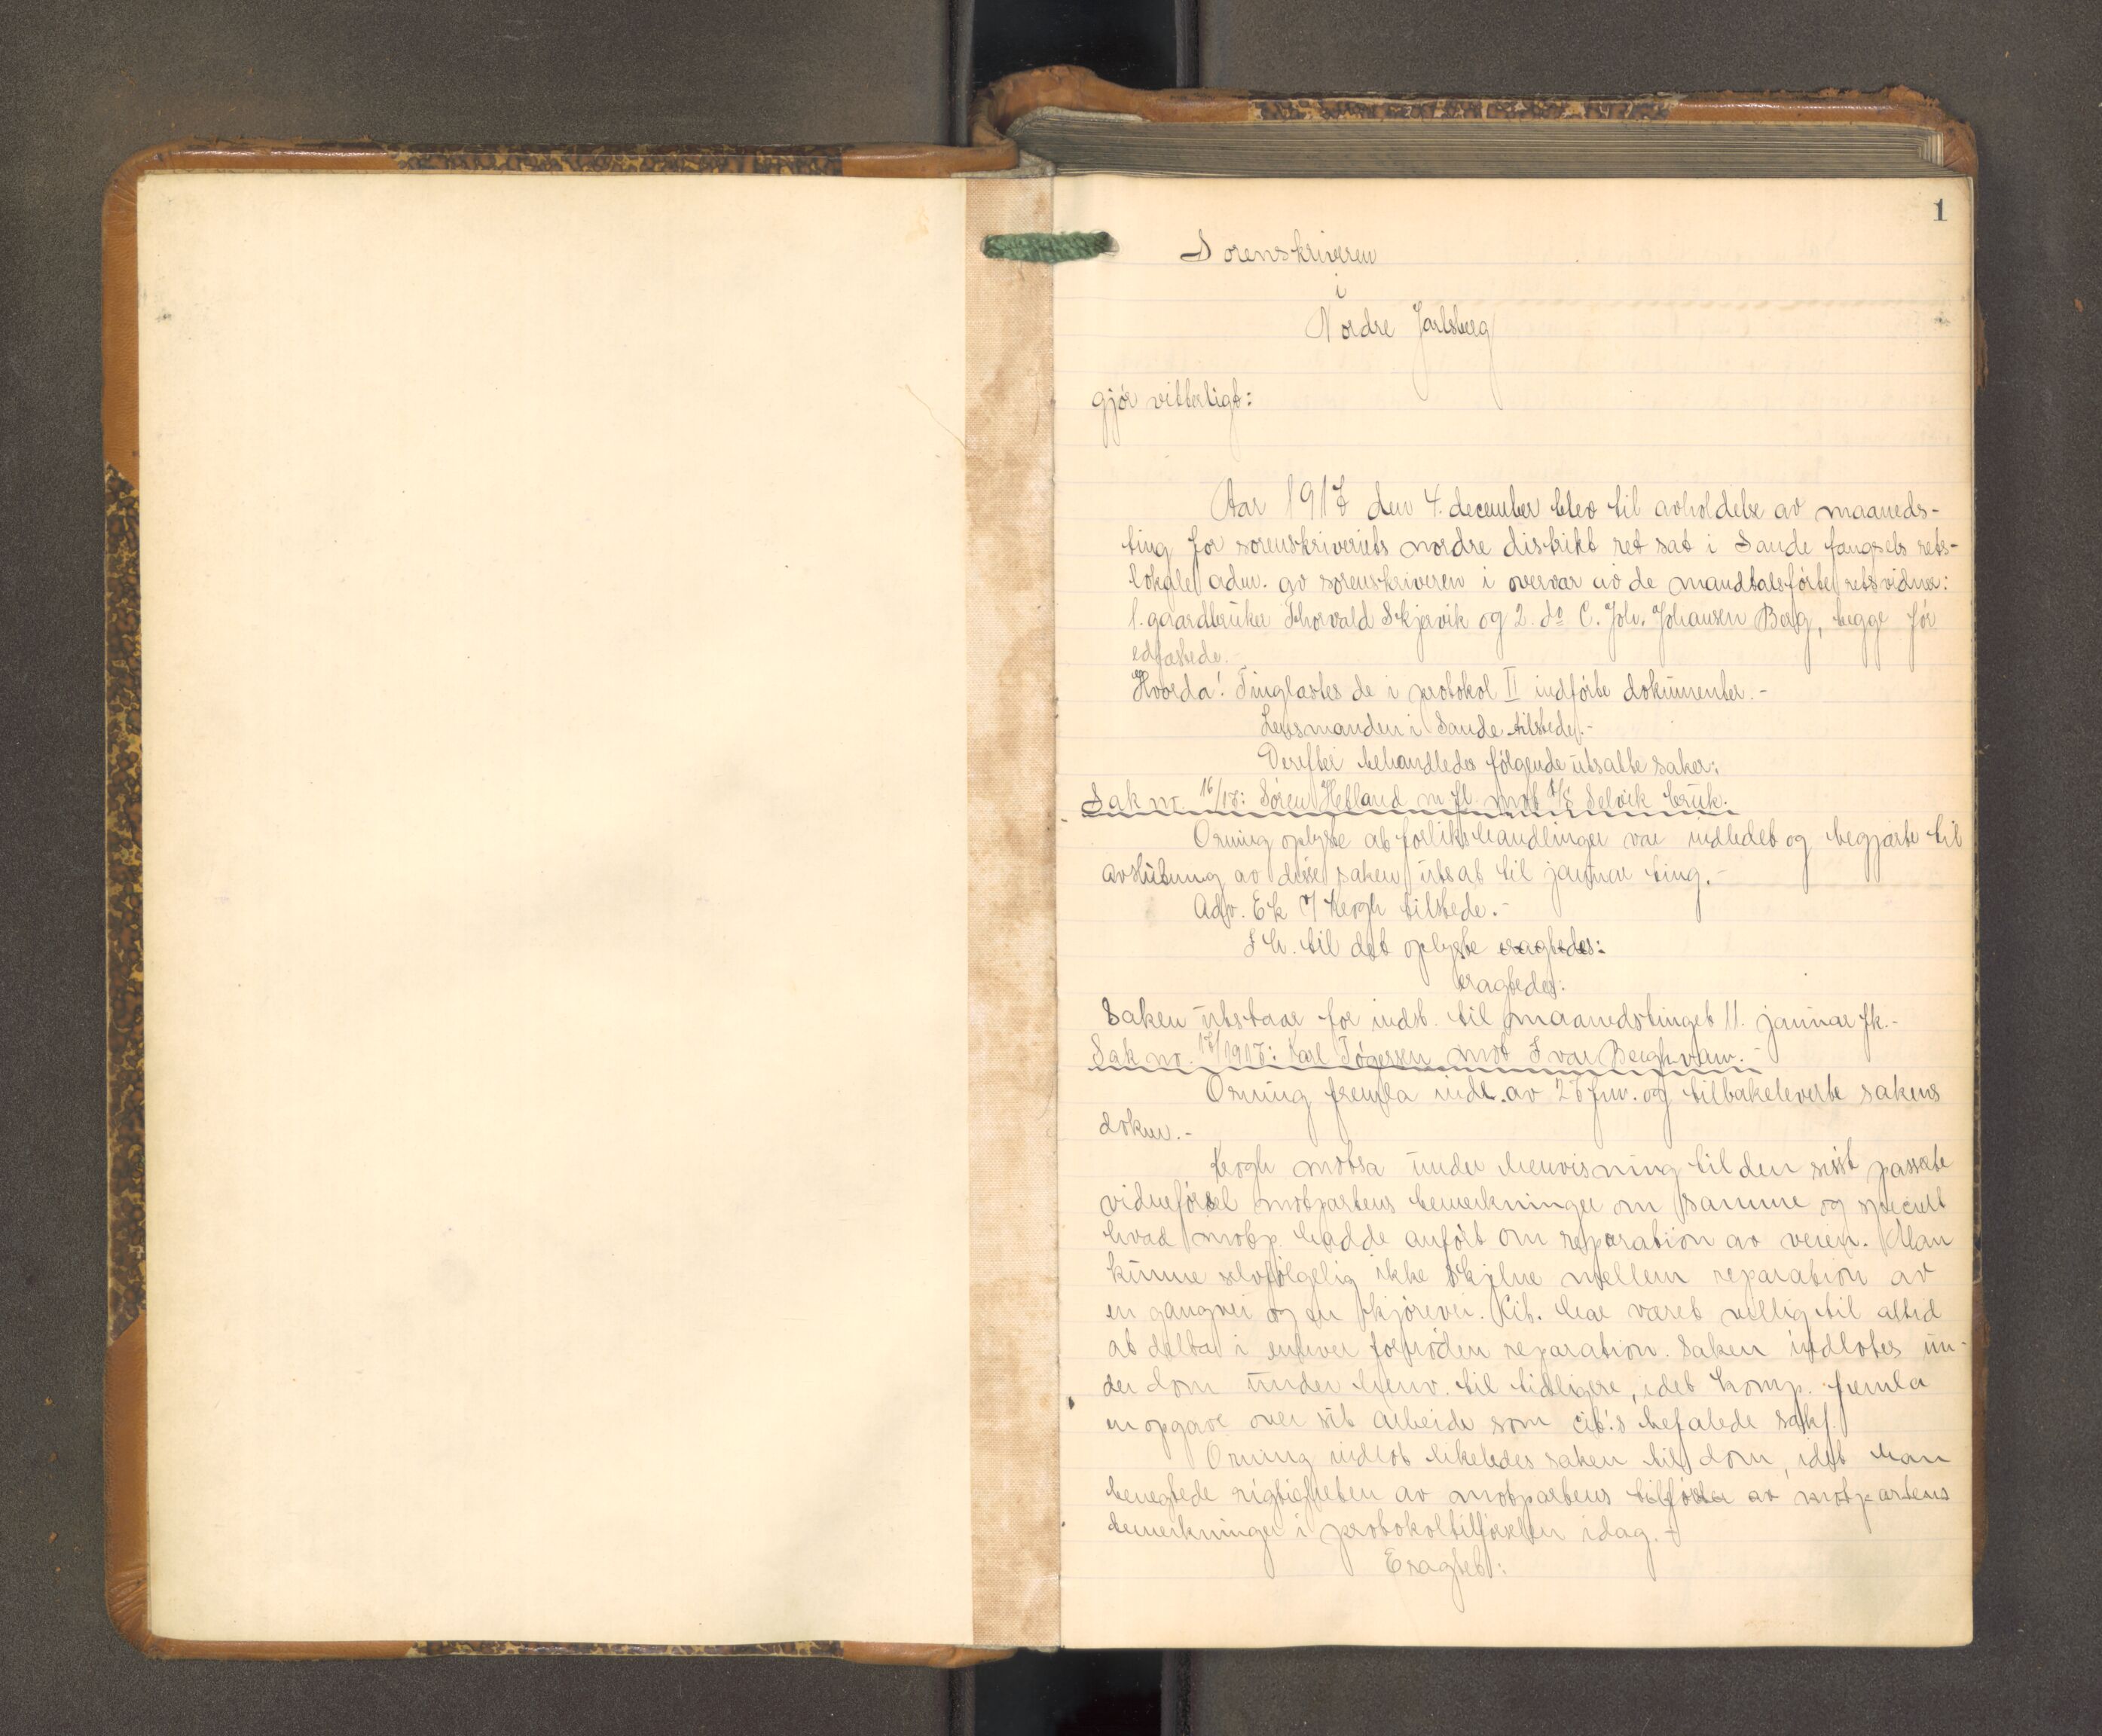 1
Sorenskriveren
i
Nordre Jarlsberg
gjør vitterligt:
Aar 1917 den 4. december blev til avholdelse av maaneds-
ting for sorenskriveriets nordre distrikt ret sat i Sande fængsels rets-
lokale adm. av sorenskriveren i overvær av de mandtalsførte retsvidner:
1. gaardbruker Thorvald Skjervik og 2. do C. Joh. Johansen Berg, begge før
edfæstede.
Hvorda: Tinglæstes de i protokol II indførte dokumenter.-
Lensmanden i Sande tilstede.-
Derefter behandledes følgende utsatte saker:
Sak nr. 16/17: Søren Helland m. fl. mot A/S Selvik bruk.
Orning oplyste at forlikshandlinger var indledet og begjærte til
avslutning av disse saken utsat til januar ting.-
Adv. Ek v/ Krogh tilstede.-
I h. til det oplyste eragtedes:
eragtedes:
Saken utstaar for indst. til maanedstinget 11. januar fk.-
Sak nr. 17/1917: Karl Tørgersen mot Ivar Bergh-
Orning fremla indl. av 26 om. og tilbakeleverte sakens
dokum.-
Krogh motsa under henvisning til den sist passerte
vidneførsel motpartens bemerkninger om samme og specielt
hvad motp. hadde anført om reparation av veien. Man
kunne selvfølgelig ikke skjelne mellem reparation av
en gangvei og en kjørevei. Cit. har været villig til altid
at delta i enhver fornøden reparation. Saken indlotes un-
der dom under henv. til tidligere, idet komp. fremla
en opgave over sit arbeide som cit.'s befalede sakf.
Orning indlot likeledes saken til dom, idet han
benegtede rigtigheten av motpartens tilførte av motpartens
bemerkninger i protokoltilførselen idag.-
Eragtet: